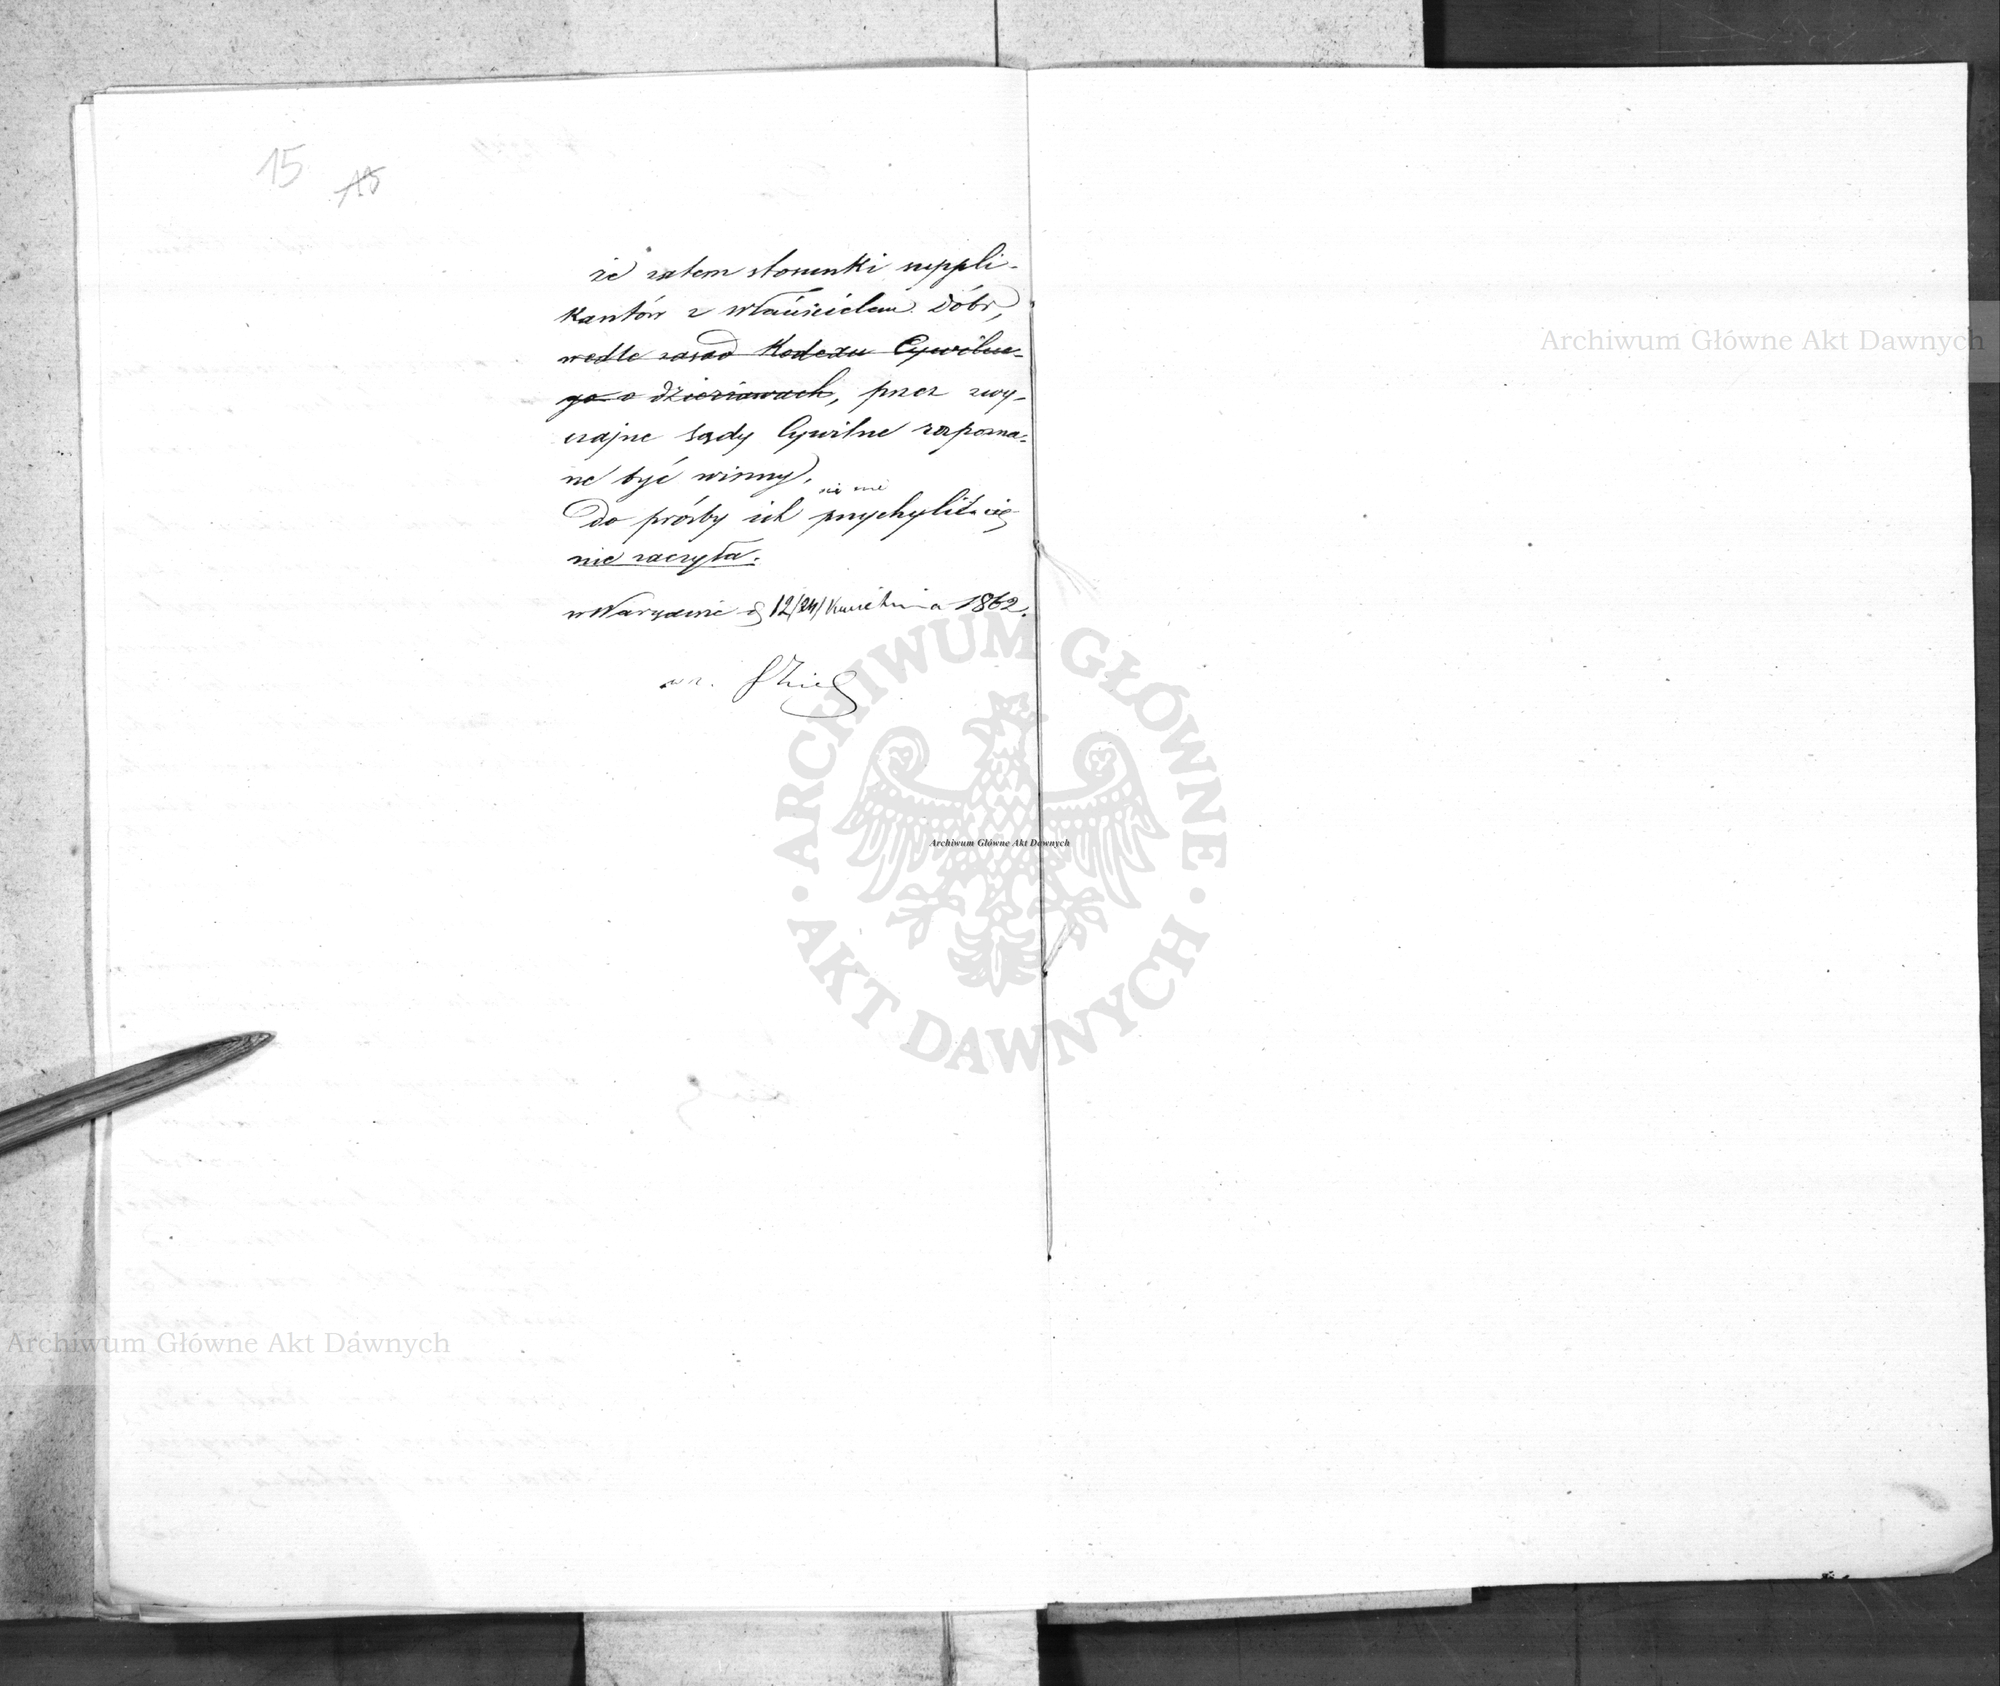 15
15
że zatem stosunki suppli-
kantów z właścicielem Dóbr,
wedle zasad Kodexu Cywilne-
go o dzierżawach, przez zwy-
czajne Sądy Cywilne rozpozna-
ne być winny,
się nie
Do prośby ich przychylić się
nie raczyła.
w Warszawie d 12/24/ Kwietnia 1862.
Archiwum Główne Akt Dawnych
ARCHIWUM GŁÓWNE AKT DAWNYCH
Archiwum Główne Akt Dawnych
Archiwum Główne Akt Dawnych